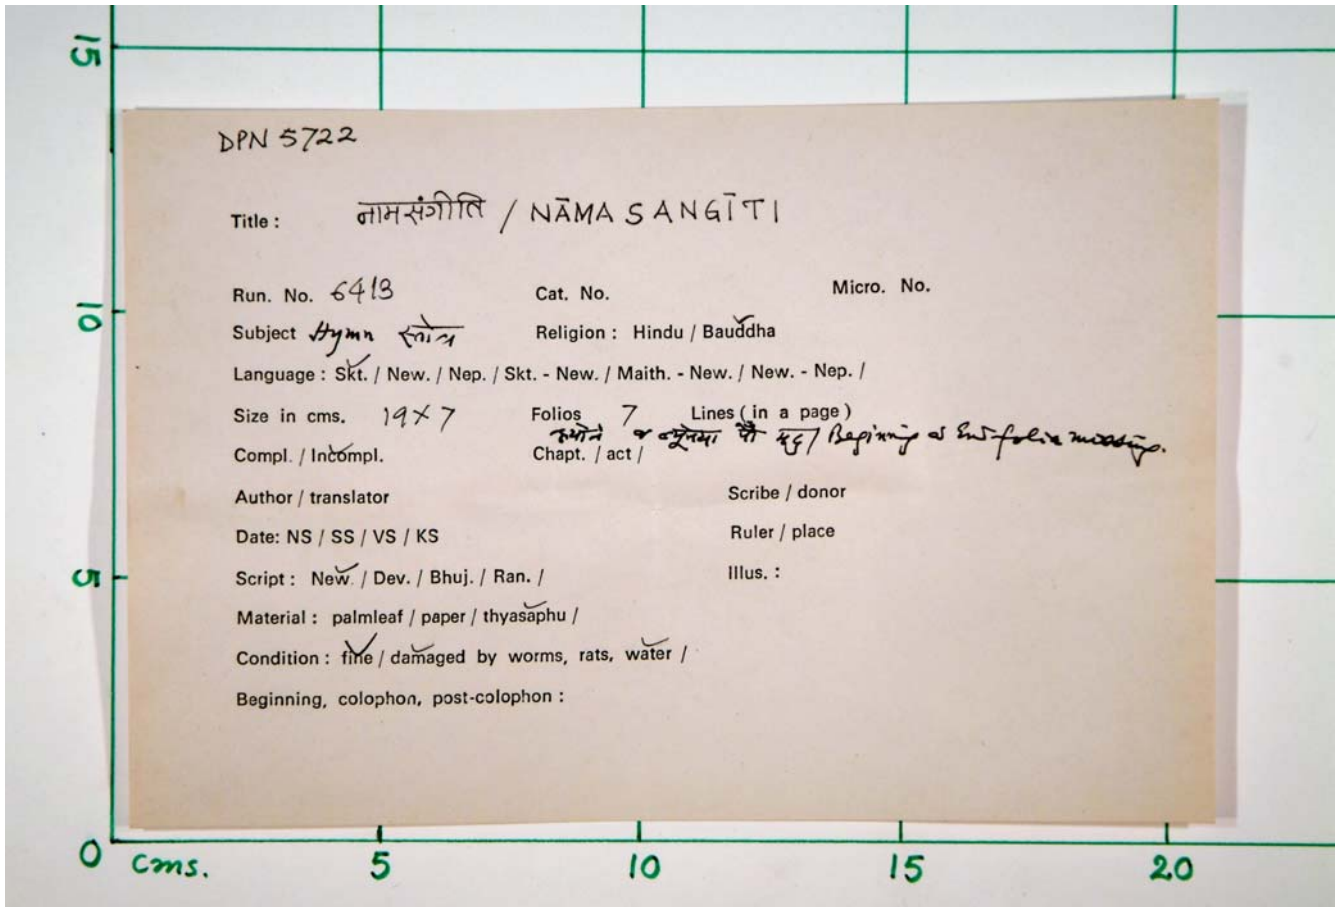 15
DPN 5722
Title : नामसंगीति / NĀMASANGĪTI
Run. No. 6413 Cat. No. Micro. No.
10
Subject Hymn स्तोत्र Religion : Hindu / Bauddha
Language : Skt. / New. / Nep. / Skt. - New. / Maith. - New. / New. - Nep. /
Size in cms. 19×7 Folios 7 Lines (in a page)
Beginning & End folia missing.
Compl. / Incompl. Chapt. / act /
Author / translator Scribe / donor
Date: NS / SS / VS / KS Ruler / place
5
Script : New. / Dev. / Bhuj. / Ran. / Illus. :
Material : palmleaf / paper / thyasaphu /
Condition : fine / damaged by worms, rats, water /
Beginning, colophon, post-colophon :
0 Cms. 5 10 15 20